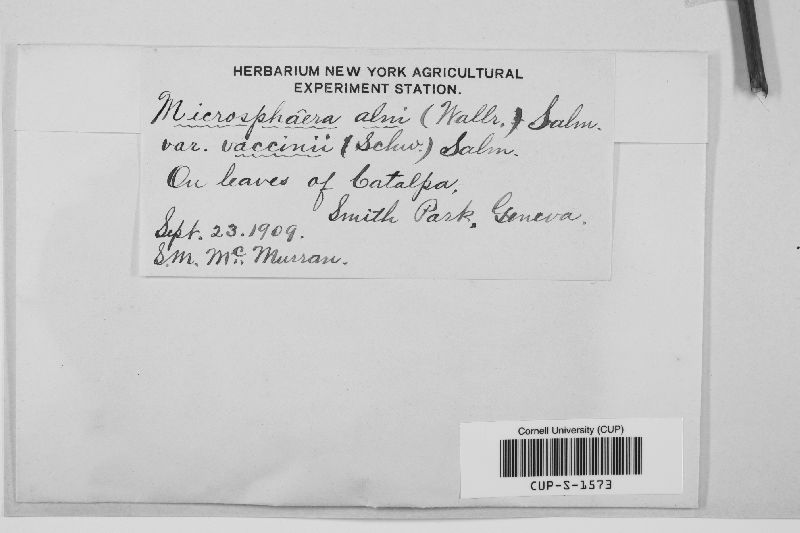 HERBARIUM NEW YORK AGRICULTURAL
EXPERIMENT STATION.
Microsphaera alni (Wallr.) Salm.
var. vaccinii (Schw.) Salm.
On leaves of Catalpa,
Smith Park, Geneva.
Sept. 23. 1909.
S.M. Mc. Murran.
Cornell University (CUP)
CUP-S-1573